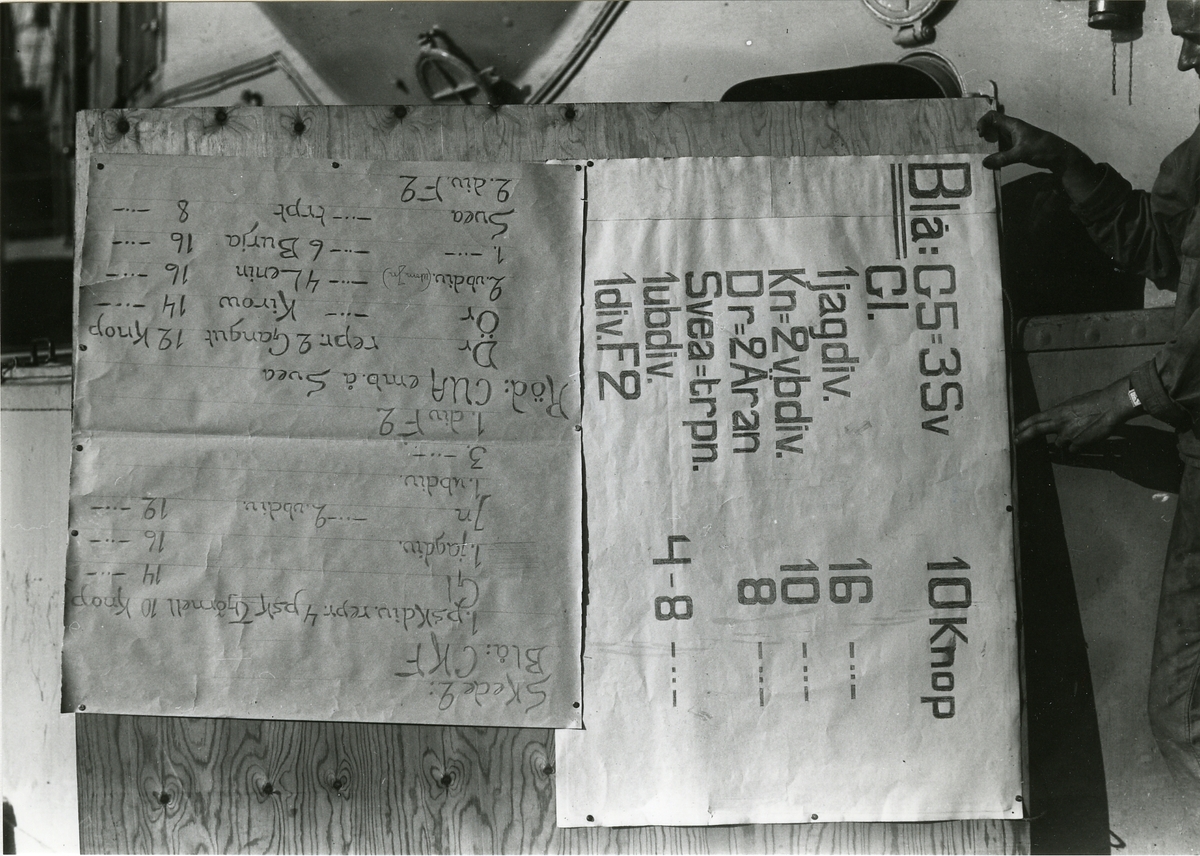 Blå: C5=3Sv 10 Knop
Cl.
1jagdiv. 16 -··-
Kn=2vbdiv. 10 -··-
Dr=2Äran 8 -··-
Svea=trpn.
1ubdiv. 4-8 -··-
1div.F2
Skede 2:
Blå: CKF
1.pskdiv. repr. 4 psk 10 Knop
Gl 14 -··-
1.jagdiv. 16 -··-
Jn -··- 2.vbdiv. 12 -··-
1.ubdiv.
3. -··-
1.div F2
Röd: CUA emb.å Svea
Dr repr. 2 Gangut 12 Knop
Ör -··- Kirow 14 -··-
2.vbdiv. (utom Jn) -··- 4 Lenin 16 -··-
1. -··- -··- 6 Burja 16 -··-
Svea -··- trpt 8 -··-
2.div.F2